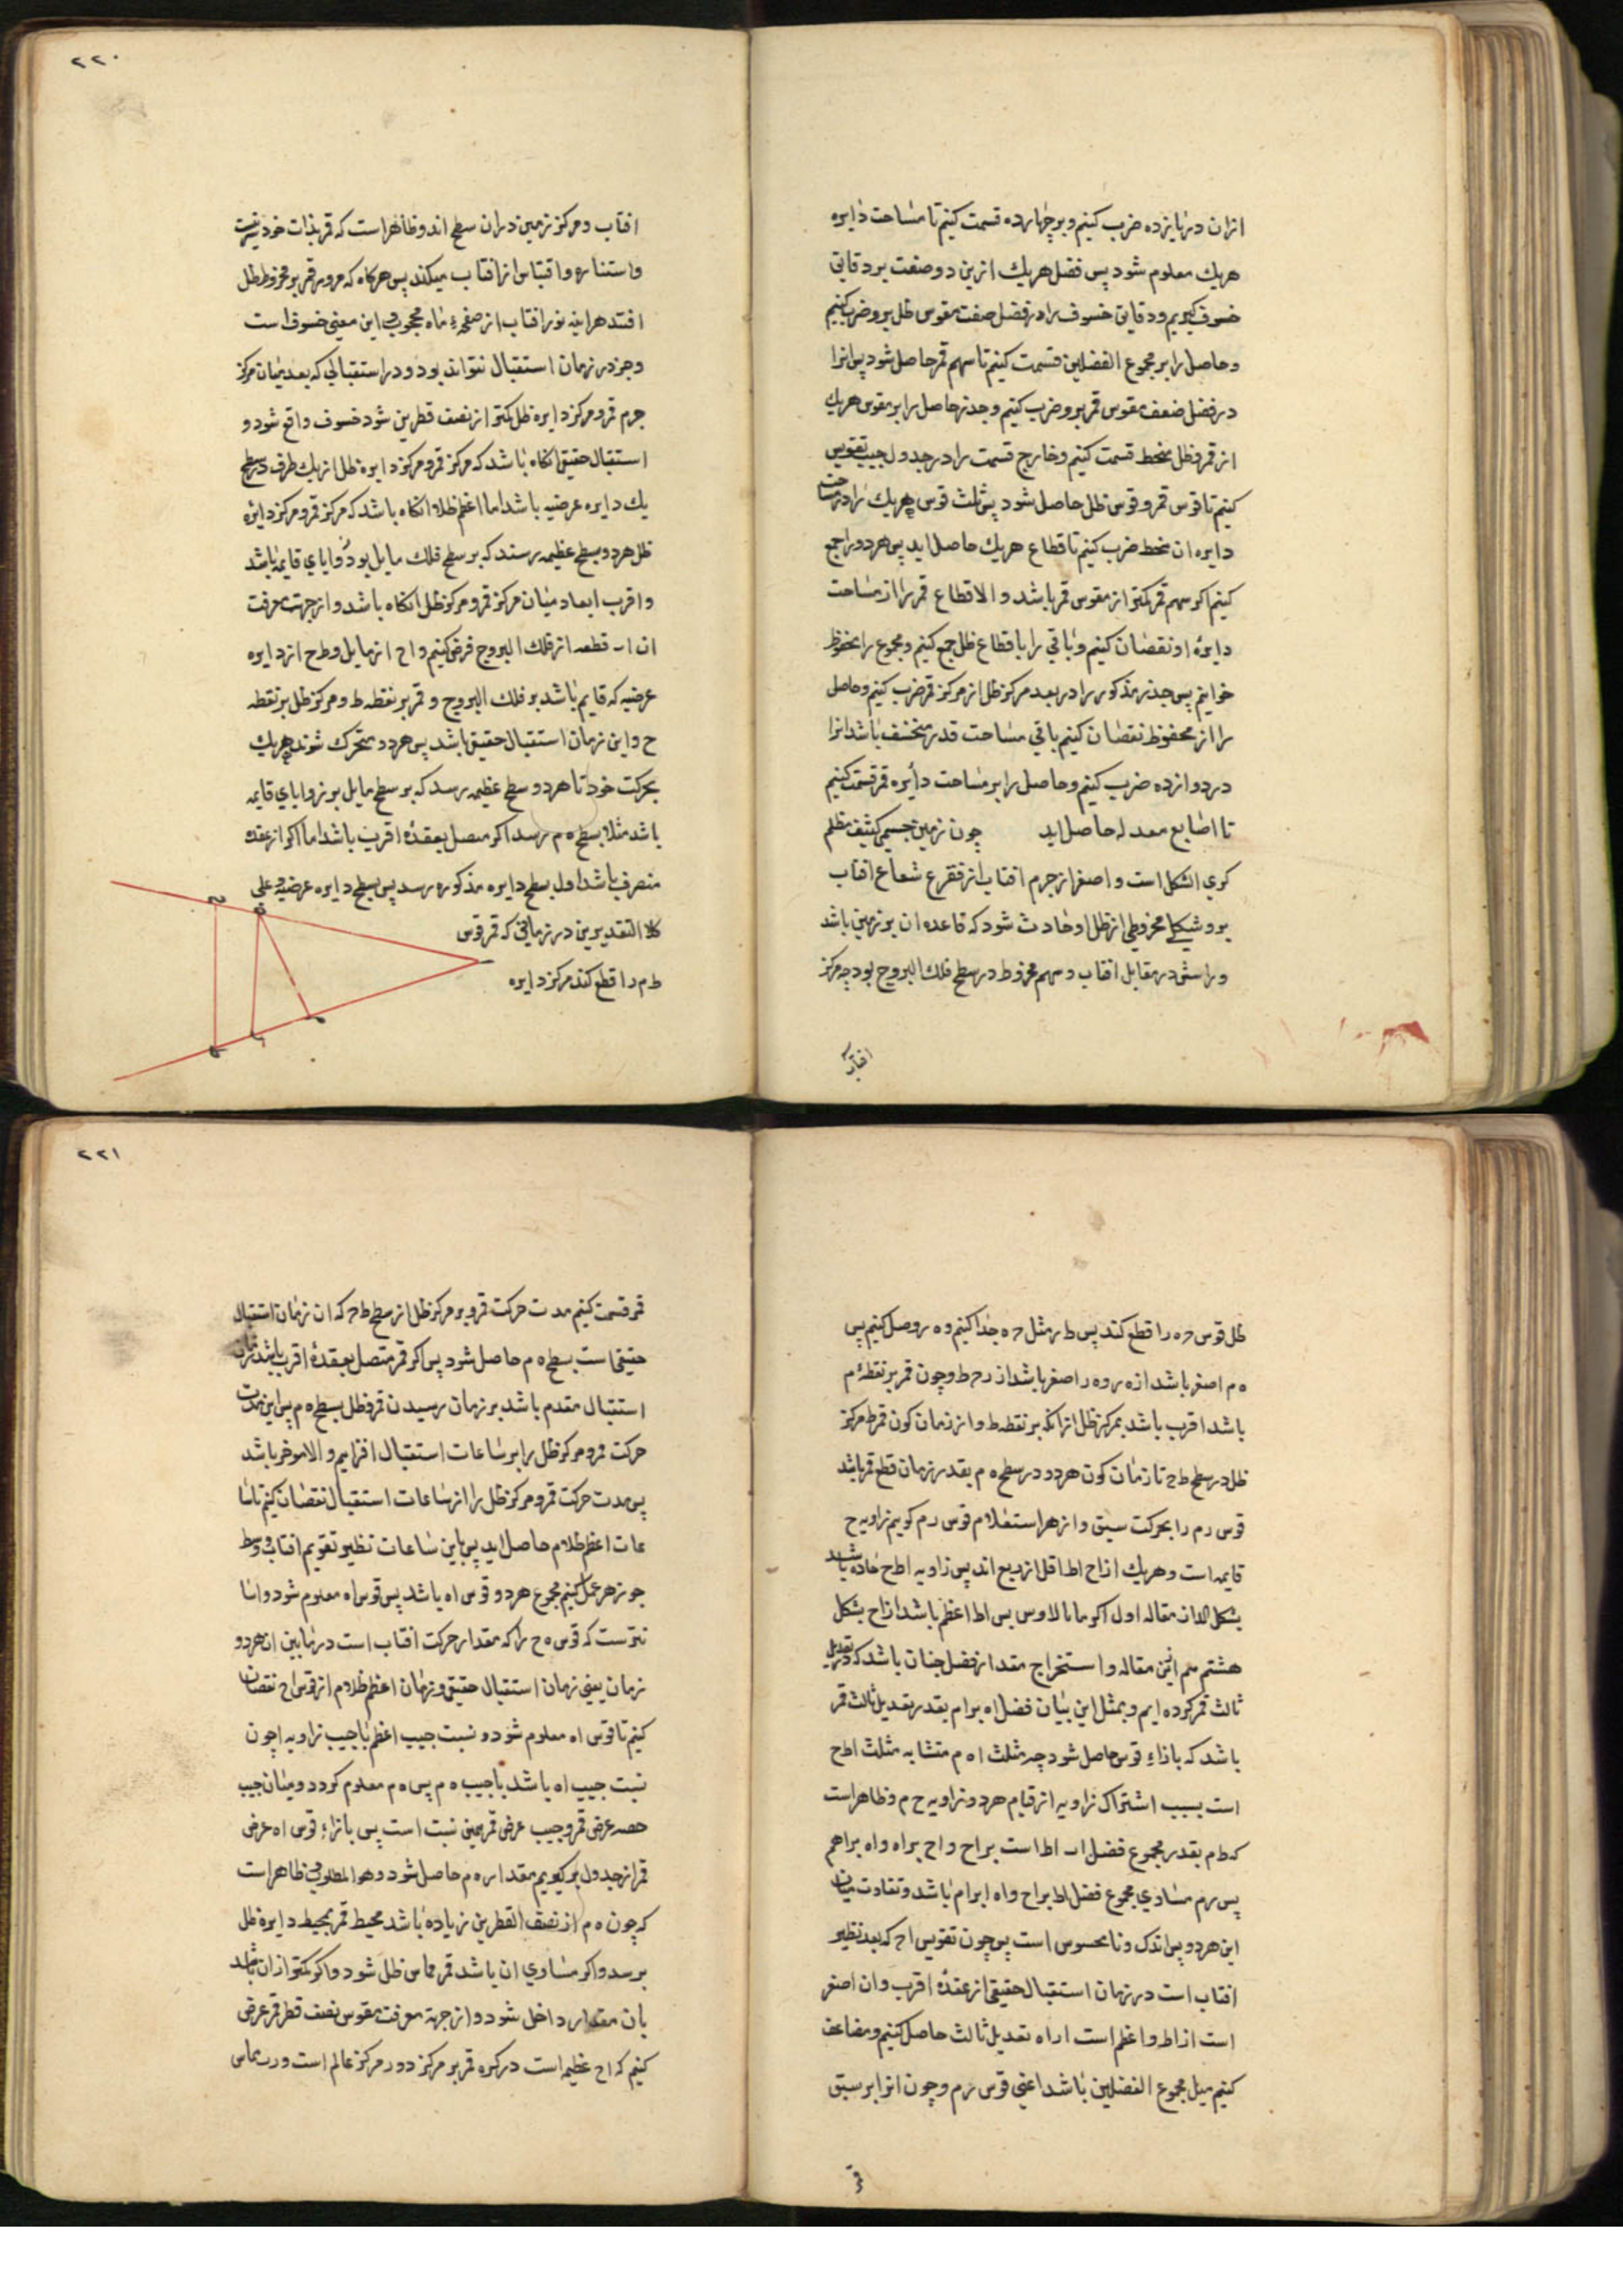 ازان در یازده ضرب کنیم و بر چهارده قسمت کنیم تا مساحت دایره
هریك معلوم شود پس فضل هریك ازین دو صنعت بر دقایق
خسوف کیریم و دقایق خسوف را در فضل صنعت مقوس ظل برو ضرب کنیم
و حاصل را بر مجموع الفضلین قسمت کنیم تا سهم قمر حاصل شود پس انرا
در فضل ضعف مقوس قمر برو ضرب کنیم و جذر حاصل را بر مقوس هریك
از قمر و ظل منحط قسمت کنیم و خارج قسمت را در جدول جیب تقویس
کنیم تا قوس قمر و قوس ظل حاصل شود پس ثلث قوس هریك را در مساحت
دایره ان منحط ضرب کنیم تا قطاع هریك حاصل اید پس هردو را جمع
کنیم اکر سهم قمر کمتر از مقوس قمر باشد و الا قطاع قمر را از مساحت
دایرهٔ او نقصان کنیم و باقی را با قطاع ظل جمع کنیم و مجموع را محفوظ
خوانیم پس جذر مذکور را در بعد مرکز ظل از مرکز قمر ضرب کنیم و حاصل
را از محفوظ نقصان کنیم باقی مساحت قدر منخسف باشد انرا
در دوازده ضرب کنیم و حاصل را بر مساحت دایره قمر قسمت کنیم
تا اصابع معدله حاصل اید چون زمین جسمی کثیف مظلم
کری الشکل است و اصغر از جرم افتاب از فقرع شعاع افتاب
برو شکلی مخروطی از ظل او حادث شود که قاعده ان بر زمین باشد
و راسش در مقابل افتاب و سهم مخروط در سطح فلك البروج بود چه مرکز
افتاب
۲۲۰
افتاب و مرکز زمین دران سطح اند و ظاهر است که قمر بذات خود نیر نیست
و استناره و اقتباس از افتاب میکند پس هرکاه که مرور قمر بر مخروط ظل
افتد هراینه نور افتاب از صفحهٔ ماه محجوب و این معنی خسوف است
و جز در زمان استقبال نتواند بود و در استقبالی که بعد میان مرکز
جرم قمر و مرکز دایره ظل کمتر از نصف قطرین شود خسوف واقع شود و
استقبال حقیقی انکاه باشد که مرکز قمر و مرکز دایره ظل از یك طرف در سطح
یك دایره عرضیه باشد اما اعظم ظلام انکاه باشد که مرکز قمر و مرکز دایره
ظل هردو بسطح عظیمه رسند که بر سطح فلك مایل بود و زوایای قایمه باشد
و اقرب ابعاد میان مرکز قمر و مرکز ظل انکاه باشد و از جهت معرفت
ان اب قطعه از فلك البروج فرض کنیم و اح از مایل و طح از دایره
عرضیه که قایم باشد بر فلك البروج و قمر بر نقطه ط و مرکز ظل بر نقطه
ح و این زمان استقبال حقیقی باشد پس هردو متحرك شوند هریك
بحرکت خود تا هردو بسطح عظیمه رسد که بر سطح مایل بر زوایای قایمه
باشد مثلا بسطح ه م رسد اکر متصل بعقدهٔ اقرب باشد اما اکر از عقده
منصرف باشد اول بسطح دایره مذکوره رسد پس بسطح دایره عرضیه و علی
کلا التقدیرین در زمانی که قمر قوس
ط م را قطع کند مرکز دایره
ظل قوس ح ه را قطع کند پس ط ر مثل ح ه جدا کنیم و ه ر وصل کنیم پس
ه م اصغر باشد از ه ر و ه ر اصغر باشد از ح ط و چون قمر بر نقطهٔ م
باشد اقرب باشد بمرکز ظل ازانکه بر نقطه ط و از زمان کون قمر ط مرکز
ظل در سطح ط ح تا زمان کون هردو در سطح ه م بقدر زمان قطع قمر باشد
قوس ر م را بحرکت سبق و از بهر استعلام قوس ر م کوییم زاویه ح
قایمه است و هریك از اح اط اقل از ربع اند پس زاویه اطح حاده باشد
بشکل از مقاله اول اکر مانالاوس پس اط اعظم باشد از اح بشکل
هشتم هم ازین مقاله و استخراج مقدار فضل چنان باشد که در تعدیل
ثالث قمر کرده ایم و بمثل این بیان فضل اه بر ام بقدر تعدیل ثالث قمر
باشد که بازاءِ قوس حاصل شود چه مثلث ا ه م متشابه مثلث اطح
است بسبب اشتراك زاویه ا و قیام هردو زاویه ح م و ظاهر است
که ط م بقدر مجموع فضل اط است بر اح و اح بر اه و اه بر ام
پس ر م مساوی مجموع فضل اط بر اح و اه بر ام باشد و تفاوت میان
این هردو پس اندك و نامحسوس است پس چون تقویس اح که بعد نظیر
افتاب است در زمان استقبال حقیقی از عقدهٔ اقرب و ان اصغر
است از اط و اعظم است از اه تعدیل ثالث حاصل کنیم و مضاعف
کنیم میل مجموع الفضلین باشد اعنی قوس ر م و چون انرا بر سبق
قمر
۲۲۱
قمر قسمت کنیم مدت حرکت قمر و مرکز ظل از سطح ط ح که ان زمان استقبال
حقیقی است بسطح ه م حاصل شود پس اکر قمر متصل بعقدهٔ اقرب باشد زمان
استقبال مقدم باشد بر زمان رسیدن قمر و ظل بسطح ه م پس این مدت
حرکت قمر و مرکز ظل را بر ساعات استقبال افزاییم و الا موخر باشد
پس مدت حرکت قمر و مرکز ظل را از ساعات استقبال نقصان کنیم تا سا
عات اعظم ظلام حاصل اید پس باین ساعات نظیر تقویم افتاب و وسط
جوزهر عمل کنیم مجموع هردو قوس اه باشد پس قوس اه معلوم شود و اسا
نترست که قوس ه ح را که مقدار حرکت افتاب است در مابین ان هردو
زمان یعنی زمان استقبال حقیقی و زمان اعظم ظلام از قوس اح نقصان
کنیم تا قوس اه معلوم شود و نسبت جیب اعظم با جیب زاویه ا چون
نسبت جیب اه باشد با جیب ه م پس ه م معلوم کردد و میان جیب
حصه عرض قمر و جیب عرض قمر همین نسبت است پس بازاءِ قوس اه عرض
قمر از جدول بر کیریم مقدار ه م حاصل شود و هو المطلوب ظاهر است
که چون ه م از نصف القطرین زیاده باشد محیط قمر بمحیط دایره ظل
نرسد و اکر مساوی ان باشد قمر مماس ظل شود و اکر کمتر ازان باشد
بان مقدار داخل شود و از جهة معرفت مقوس نصف قطر قمر عرض
کنیم که اح عظیمه است در کره قمر بر مرکز د و ر مرکز عالم است و رب مماس